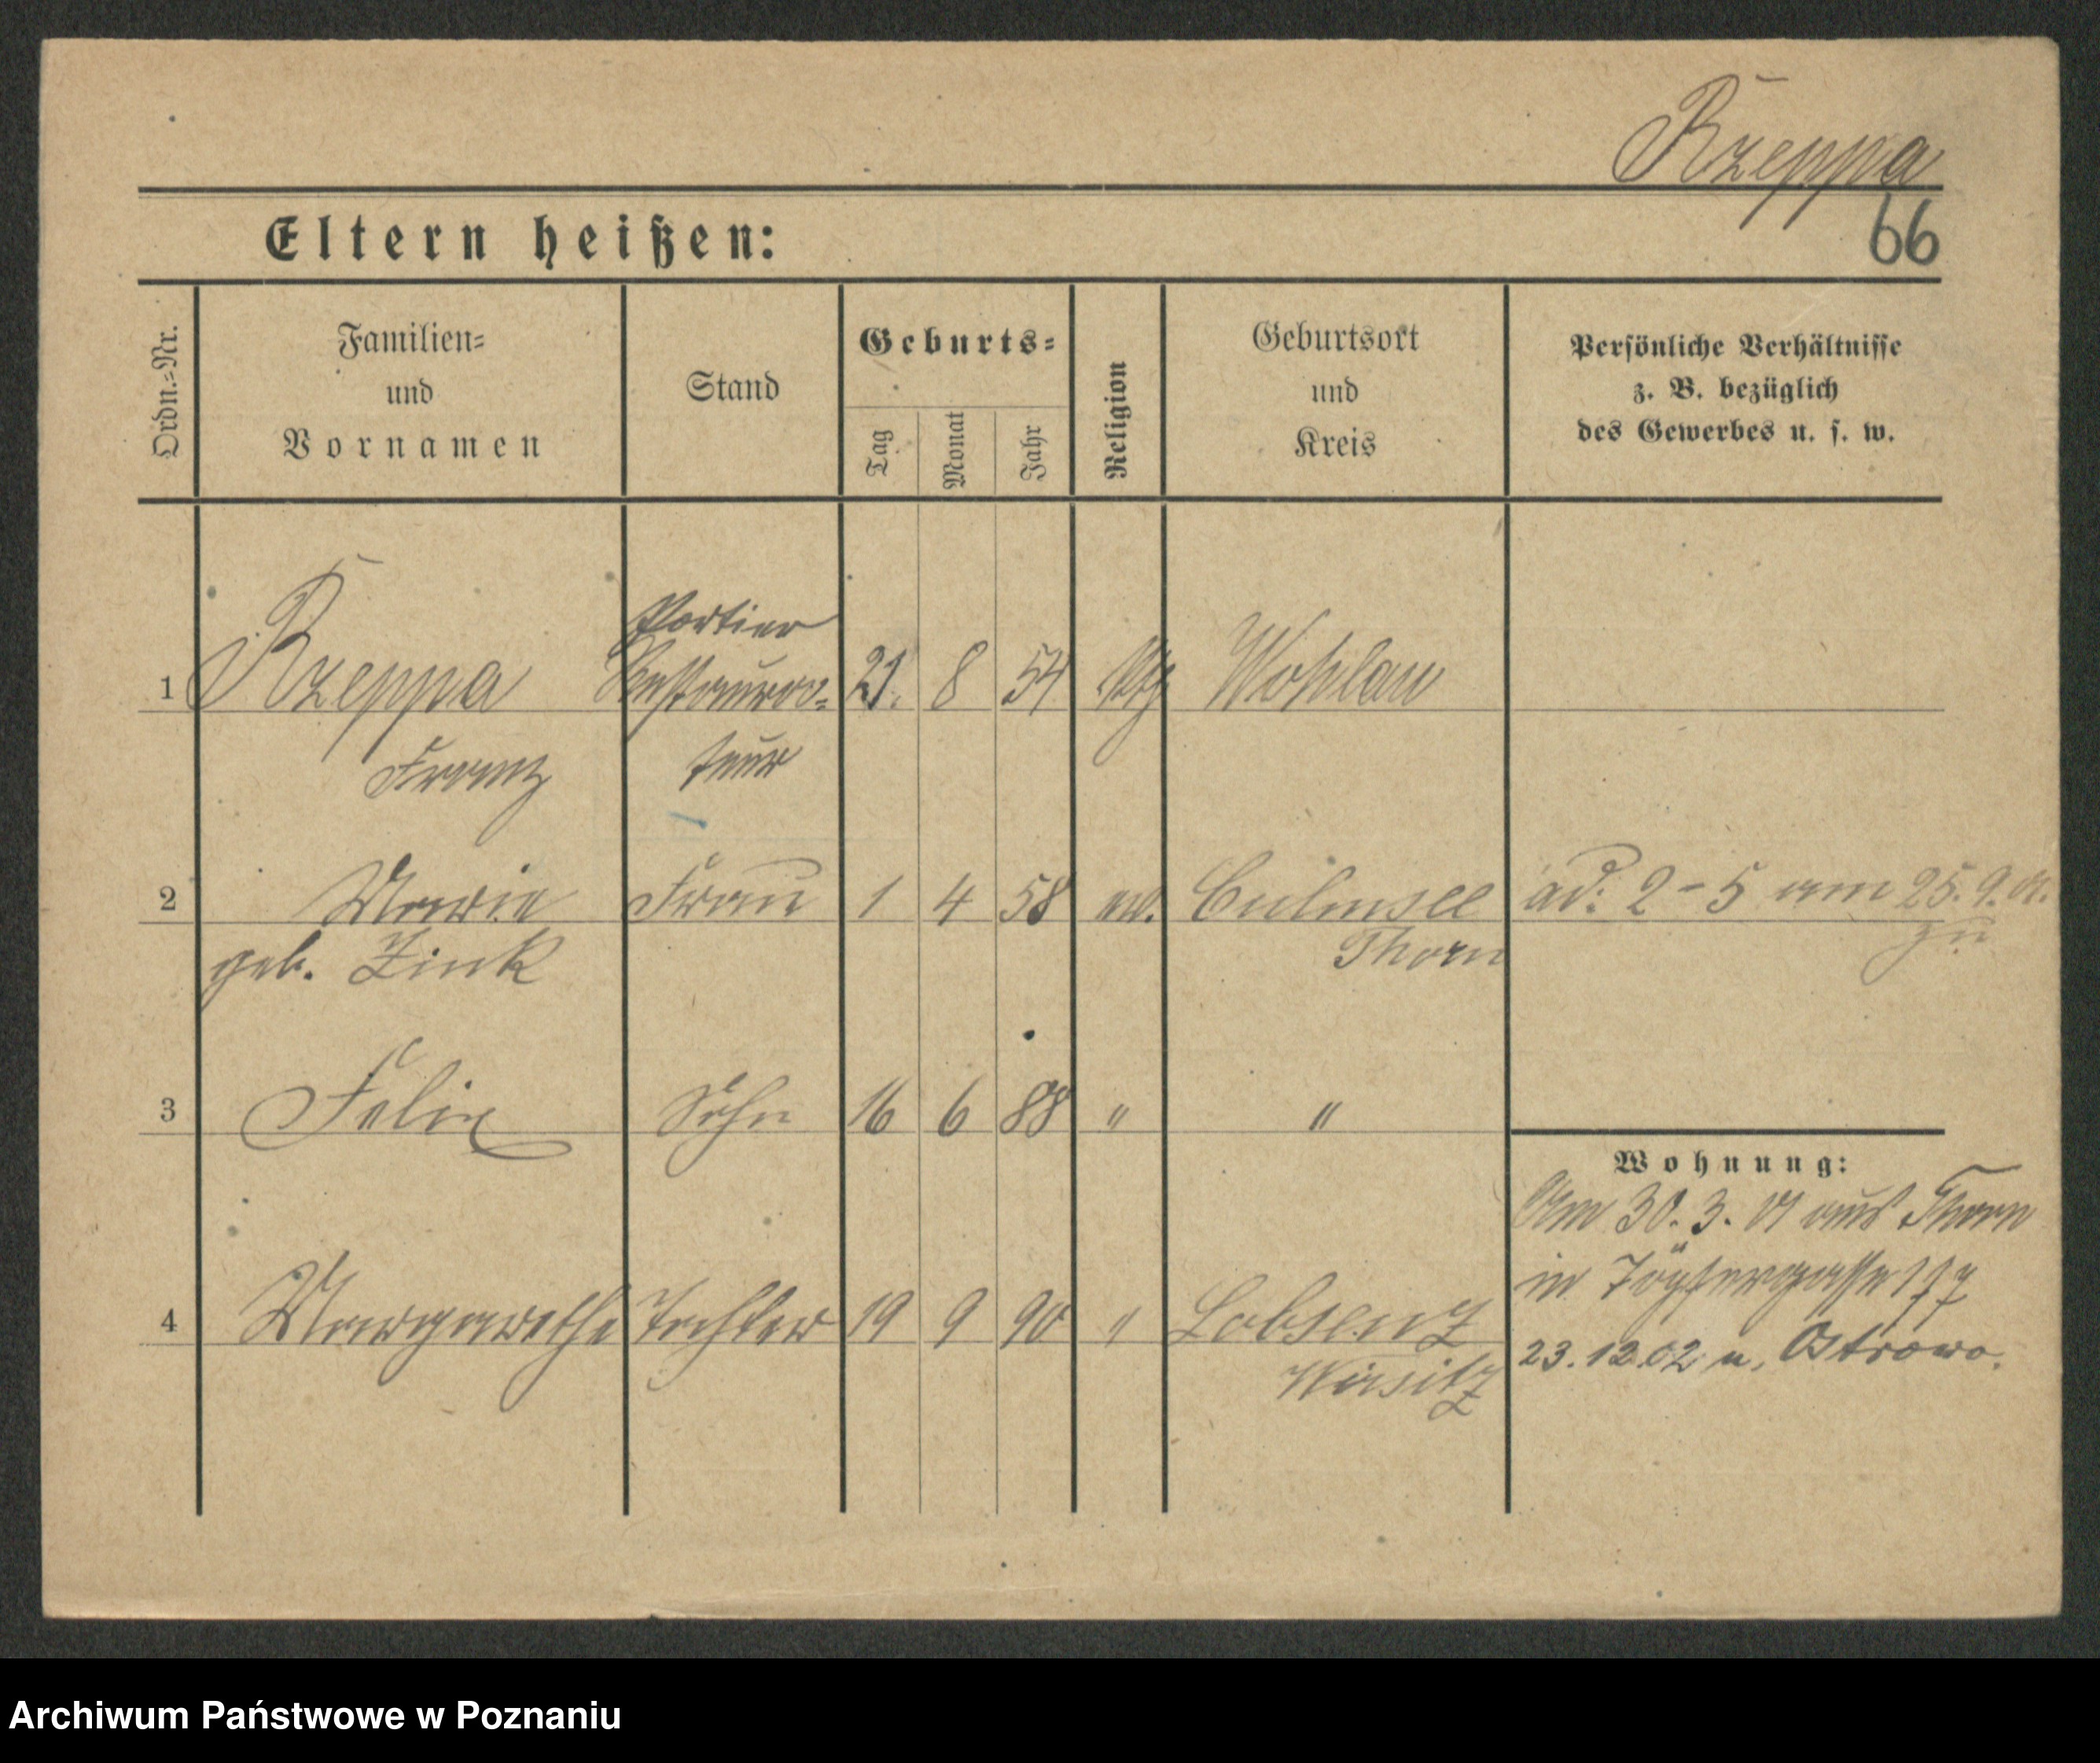 Rzeppa
Eltern heißen:
66
Ordn.-Nr.
Familien-
und
Vornamen
Stand
Geburts-
Tag
Monat
Jahr
Religion
Geburtsort
und
Kreis
Persönliche Verhältnisse
z. B. bezüglich
des Gewerbes u. s. w.
Portier
1 Rzeppa Restaura- 21. 8 54 ktg Wohlau
Franz teur
2 Marie Frau 1 4 58 ev. Culmsee ad. 2-5 am 25.9.01.
geb. Zink Thorn zu
3 Felix Sohn 16 6 88 " "
Wohnung:
Am 30.3.01 aus Thorn
in Töpfergasse
4 Margarethe Tochter 19 9 90 " Lobsenz
23.12.02 n. Ostrowo.
Wirsitz
Archiwum Państwowe w Poznaniu